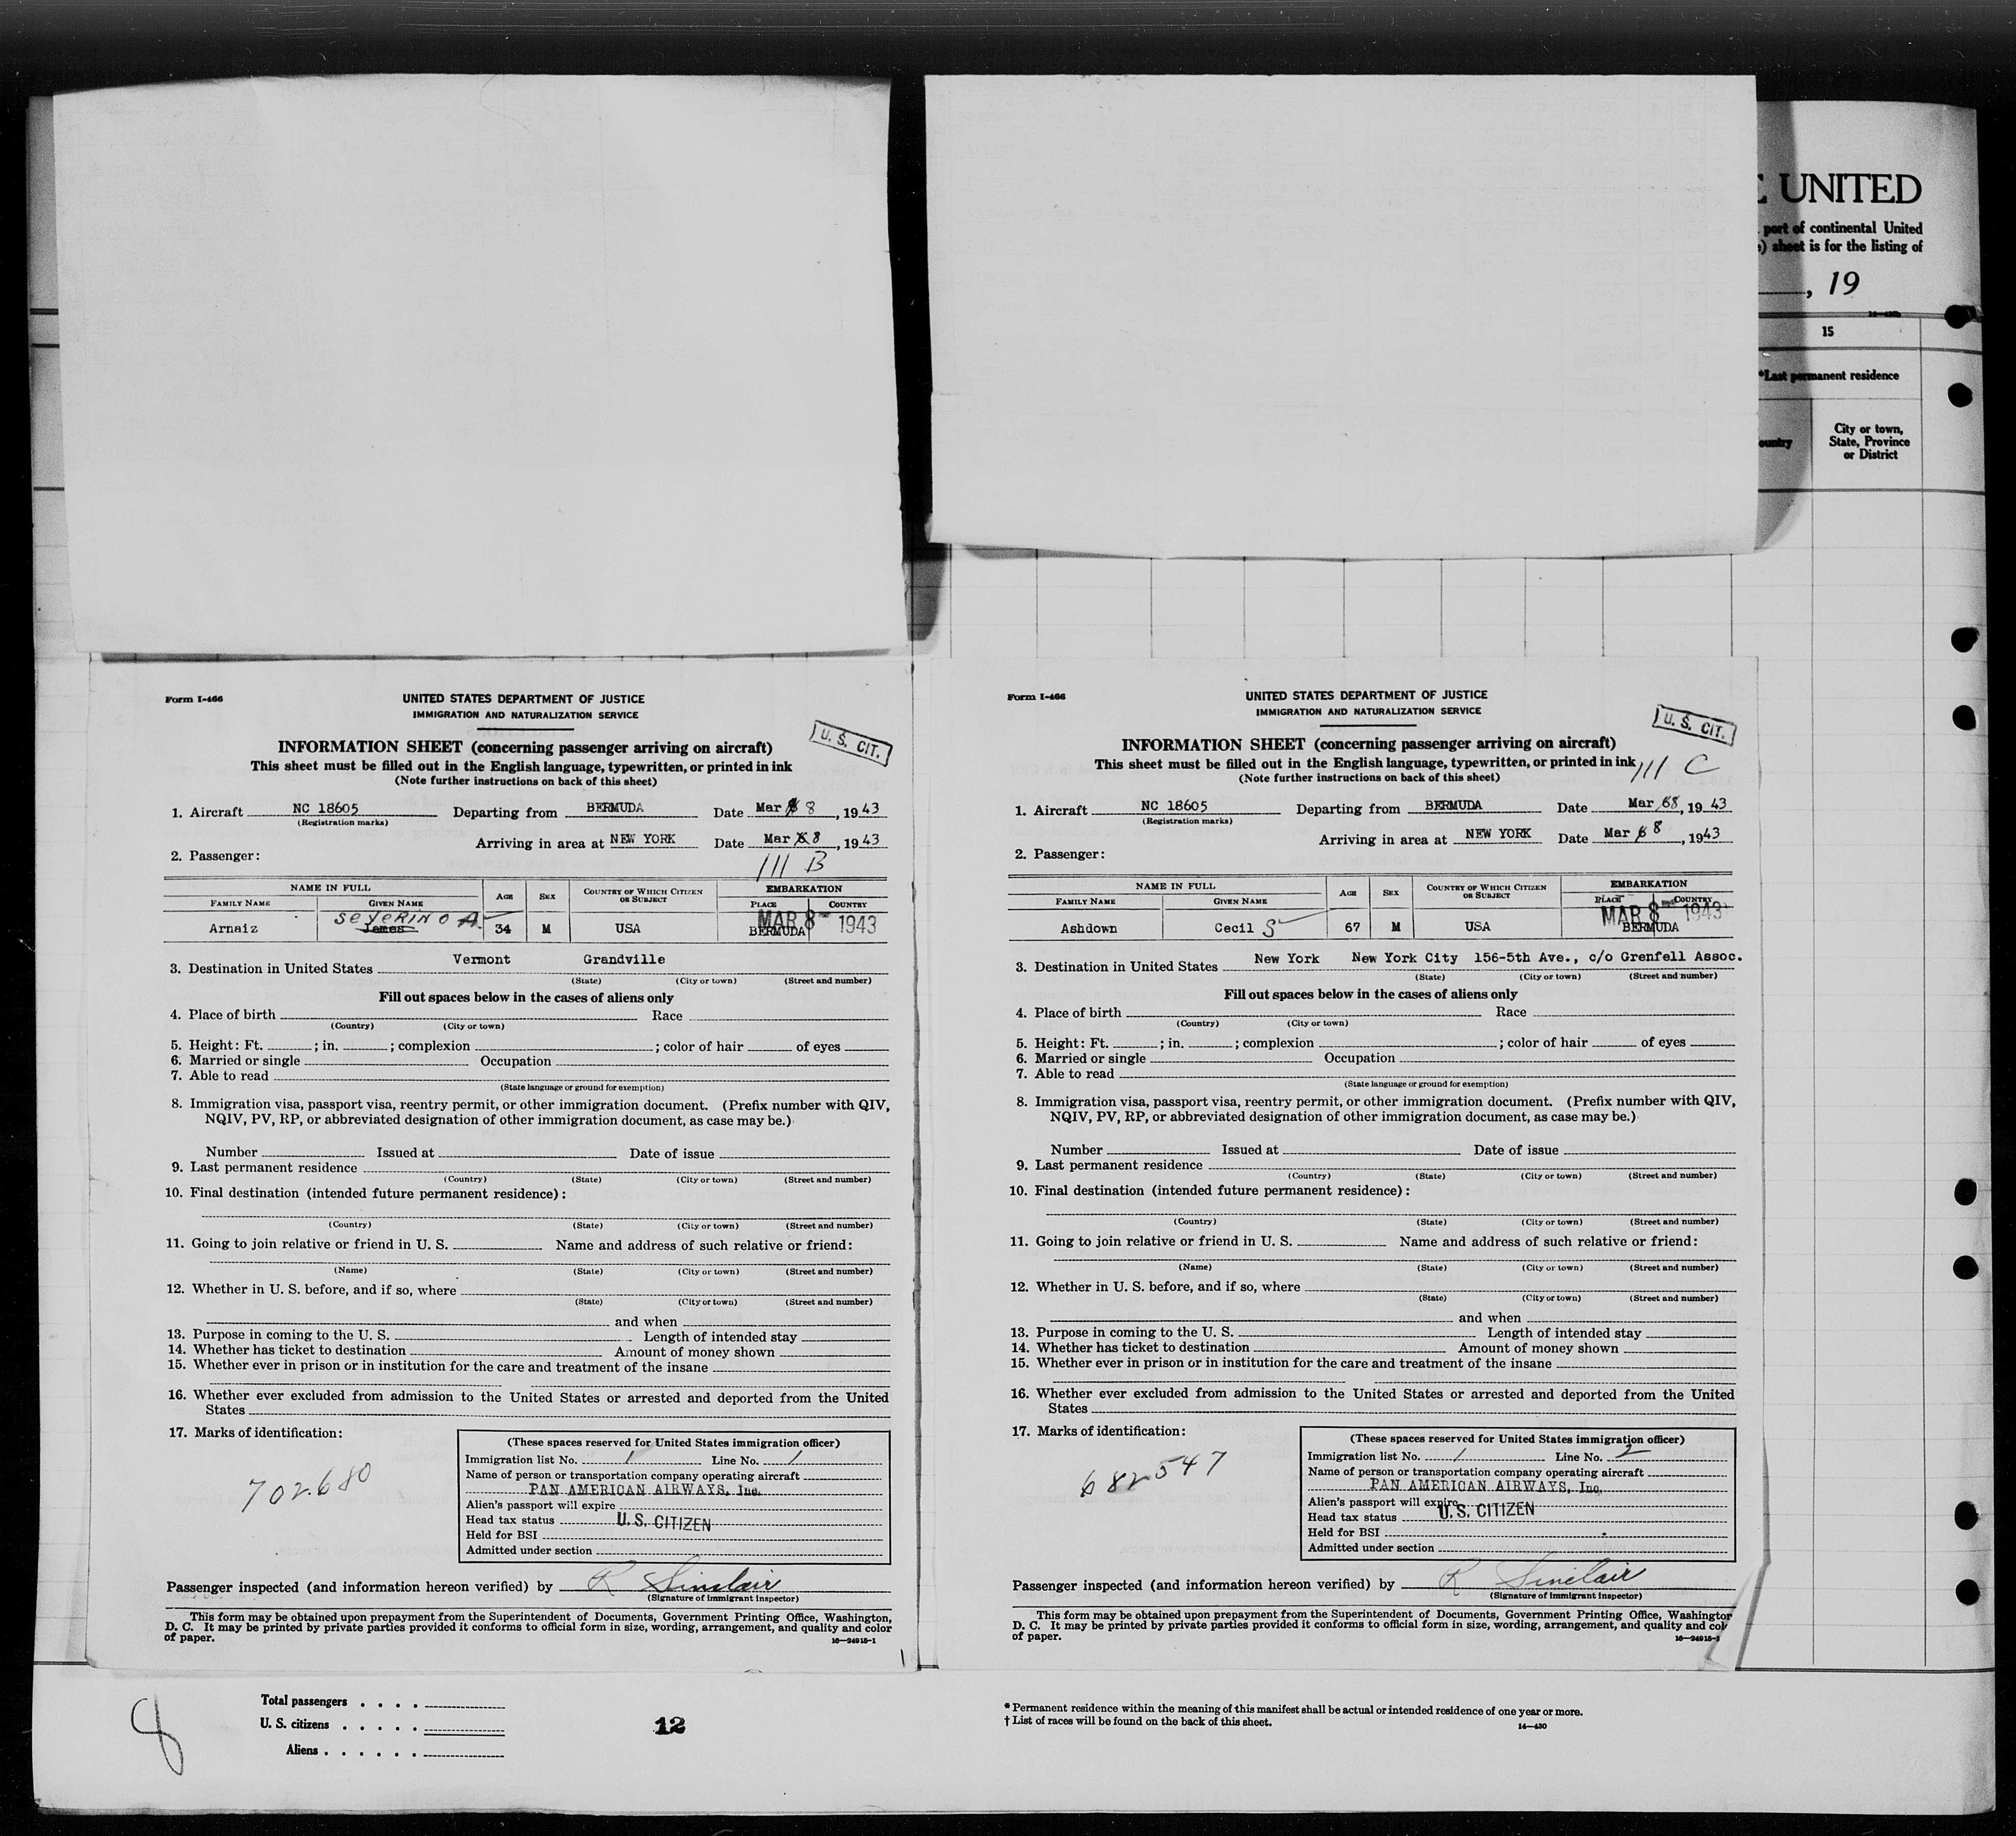 E UNITED
port of continental United
sheet is for the listing of
, 19
15
*Last permanent residence
ountry
City or town,
State, Province
or District
Form I-466
UNITED STATES DEPARTMENT OF JUSTICE
IMMIGRATION AND NATURALIZATION SERVICE
U. S. CIT.
INFORMATION SHEET (concerning passenger arriving on aircraft)
This sheet must be filled out in the English language, typewritten, or printed in ink
(Note further instructions on back of this sheet)
1. Aircraft NC 18605 Departing from BERMUDA Date Mar 8, 1943
(Registration marks)
Arriving in area at NEW YORK Date Mar 8, 1943
2. Passenger:
111 B
NAME IN FULL AGE SEX COUNTRY OF WHICH CITIZEN OR SUBJECT EMBARKATION
FAMILY NAME GIVEN NAME PLACE COUNTRY
SeVERINO A.
MAR 8 1943
Arnaiz James 34 M USA BERMUDA
3. Destination in United States Vermont Grandville
(State) (City or town) (Street and number)
Fill out spaces below in the cases of aliens only
4. Place of birth Race
(Country) (City or town)
5. Height: Ft. ; in. ; complexion ; color of hair of eyes
6. Married or single Occupation
7. Able to read
(State language or ground for exemption)
8. Immigration visa, passport visa, reentry permit, or other immigration document. (Prefix number with QIV,
NQIV, PV, RP, or abbreviated designation of other immigration document, as case may be.)
Number Issued at Date of issue
9. Last permanent residence
(Country) (State) (City or town) (Street and number)
10. Final destination (intended future permanent residence):
(Country) (State) (City or town) (Street and number)
11. Going to join relative or friend in U. S. Name and address of such relative or friend:
(Name) (State) (City or town) (Street and number)
12. Whether in U. S. before, and if so, where
(State) (City or town) (Street and number)
and when
13. Purpose in coming to the U. S. Length of intended stay
14. Whether has ticket to destination Amount of money shown
15. Whether ever in prison or in institution for the care and treatment of the insane
16. Whether ever excluded from admission to the United States or arrested and deported from the United
States
17. Marks of identification:
702680
(These spaces reserved for United States immigration officer)
Immigration list No. 1 Line No. 1
Name of person or transportation company operating aircraft
PAN AMERICAN AIRWAYS, Inc.
Alien's passport will expire
Head tax status U. S. CITIZEN
Held for BSI
Admitted under section
Passenger inspected (and information hereon verified) by R Sinclair
(Signature of immigrant inspector)
This form may be obtained upon prepayment from the Superintendent of Documents, Government Printing Office, Washington,
D. C. It may be printed by private parties provided it conforms to official form in size, wording, arrangement, and quality and color
of paper.
16—24915-1
Form I-466
UNITED STATES DEPARTMENT OF JUSTICE
IMMIGRATION AND NATURALIZATION SERVICE
U. S. CIT.
INFORMATION SHEET (concerning passenger arriving on aircraft)
This sheet must be filled out in the English language, typewritten, or printed in ink
111 C
(Note further instructions on back of this sheet)
1. Aircraft NC 18605 Departing from BERMUDA Date Mar 8, 1943
(Registration marks)
Arriving in area at NEW YORK Date Mar 8, 1943
2. Passenger:
NAME IN FULL AGE SEX COUNTRY OF WHICH CITIZEN OR SUBJECT EMBARKATION
FAMILY NAME GIVEN NAME PLACE COUNTRY
MAR 8 1943
Ashdown Cecil S 67 M USA BERMUDA
3. Destination in United States New York New York City 156-5th Ave., c/o Grenfell Assoc.
(State) (City or town) (Street and number)
Fill out spaces below in the cases of aliens only
4. Place of birth Race
(Country) (City or town)
5. Height: Ft. ; in. ; complexion ; color of hair of eyes
6. Married or single Occupation
7. Able to read
(State language or ground for exemption)
8. Immigration visa, passport visa, reentry permit, or other immigration document. (Prefix number with QIV,
NQIV, PV, RP, or abbreviated designation of other immigration document, as case may be.)
Number Issued at Date of issue
9. Last permanent residence
(Country) (State) (City or town) (Street and number)
10. Final destination (intended future permanent residence):
(Country) (State) (City or town) (Street and number)
11. Going to join relative or friend in U. S. Name and address of such relative or friend:
(Name) (State) (City or town) (Street and number)
12. Whether in U. S. before, and if so, where
(State) (City or town) (Street and number)
and when
13. Purpose in coming to the U. S. Length of intended stay
14. Whether has ticket to destination Amount of money shown
15. Whether ever in prison or in institution for the care and treatment of the insane
16. Whether ever excluded from admission to the United States or arrested and deported from the United
States
17. Marks of identification:
682547
(These spaces reserved for United States immigration officer)
Immigration list No. 1 Line No. 2
Name of person or transportation company operating aircraft
PAN AMERICAN AIRWAYS, Inc.
Alien's passport will expire
Head tax status U. S. CITIZEN
Held for BSI
Admitted under section
Passenger inspected (and information hereon verified) by R Sinclair
(Signature of immigrant inspector)
This form may be obtained upon prepayment from the Superintendent of Documents, Government Printing Office, Washington
D. C. It may be printed by private parties provided it conforms to official form in size, wording, arrangement, and quality and col
of paper.
16—24915-1
8
Total passengers . . . .
U. S. citizens . . . . .
Aliens . . . . . .
12
* Permanent residence within the meaning of this manifest shall be actual or intended residence of one year or more.
† List of races will be found on the back of this sheet.
14—430